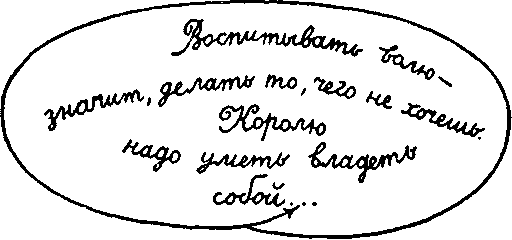 Воспитывать волю–
значит, делать то, чего не хочешь.
Королю
надо уметь владеть
собой...